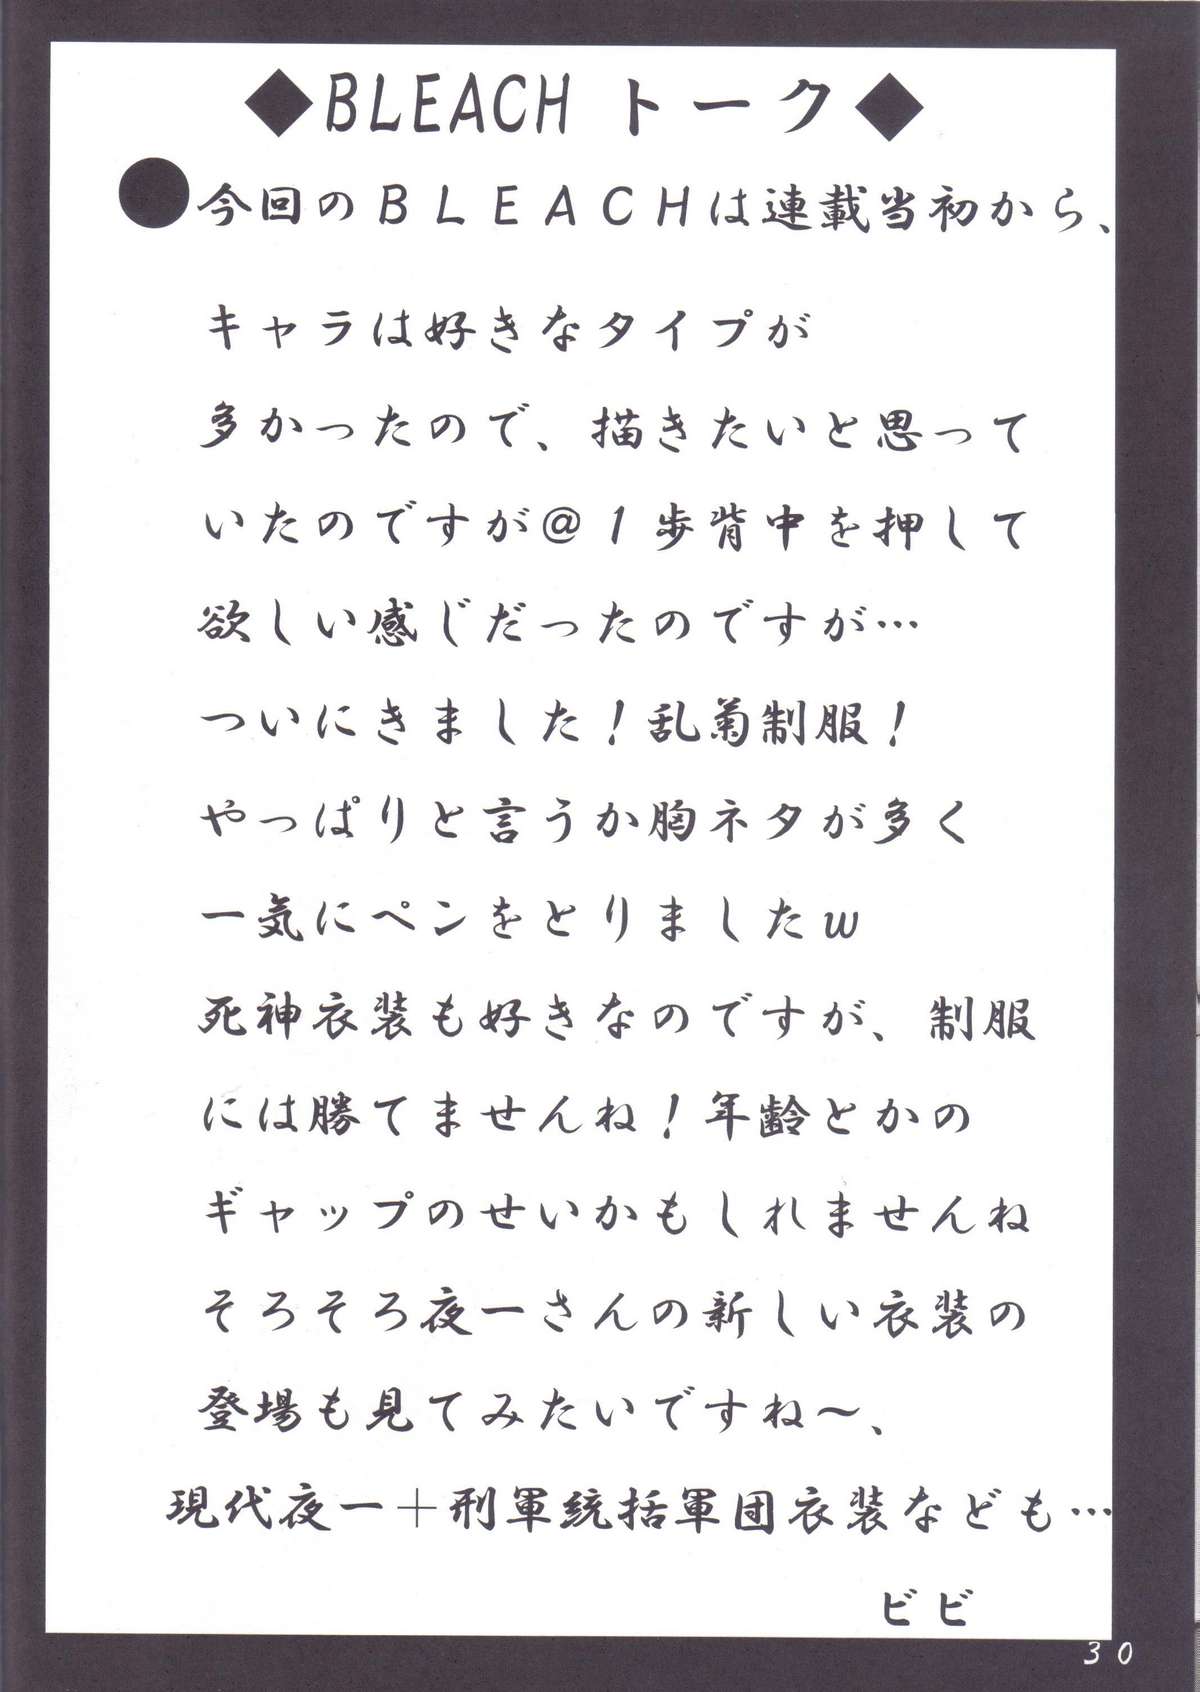 ◆BLEACH トーク◆
●今回のＢＬＥＡＣＨは連載当初から、
キャラは好きなタイプが
多かったので、描きたいと思って
いたのですが＠１歩背中を押して
欲しい感じだったのですが…
ついにきました！乱菊制服！
やっぱりと言うか胸ネタが多く
一気にペンをとりましたｗ
死神衣装も好きなのですが、制服
には勝てませんね！年齢とかの
ギャップのせいかもしれませんね
そろそろ夜一さんの新しい衣装の
登場も見てみたいですね～、
現代夜一＋刑軍統括軍団衣装なども…
ビビ
30